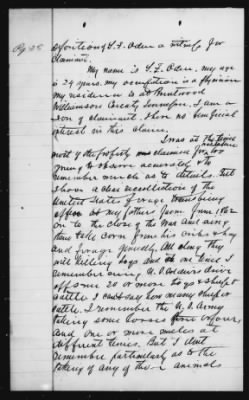 Pg 28
Deposition of T. F. Oden a witness for
claimant.
My name is T. F. Oden, my age
is 29 years. my occupation is a physician
my residence is at Brentwood
Williamson County Tennessee. I am a
son of claimant. Have no beneficial
interest in this claim.
I was at the time
most of the property
young to have accurately to
remember much as to details. But
have a clear recollection of the
United States forage trains being
at my father farm June 1862
on to the close of the war and
time take corn from his cribs & hay
and forage generally, All along they
were killing hogs and on one time I
remember seeing U. S. Soldiers drive
off some 20 or more hogs & sheep &
cattle I can't say how many sheep or
cattle. I remember the U. S. Army
taking some horses five or four,
and one or more mules at
different times. But I don't
remember particularly as to the
taking of any of the animals